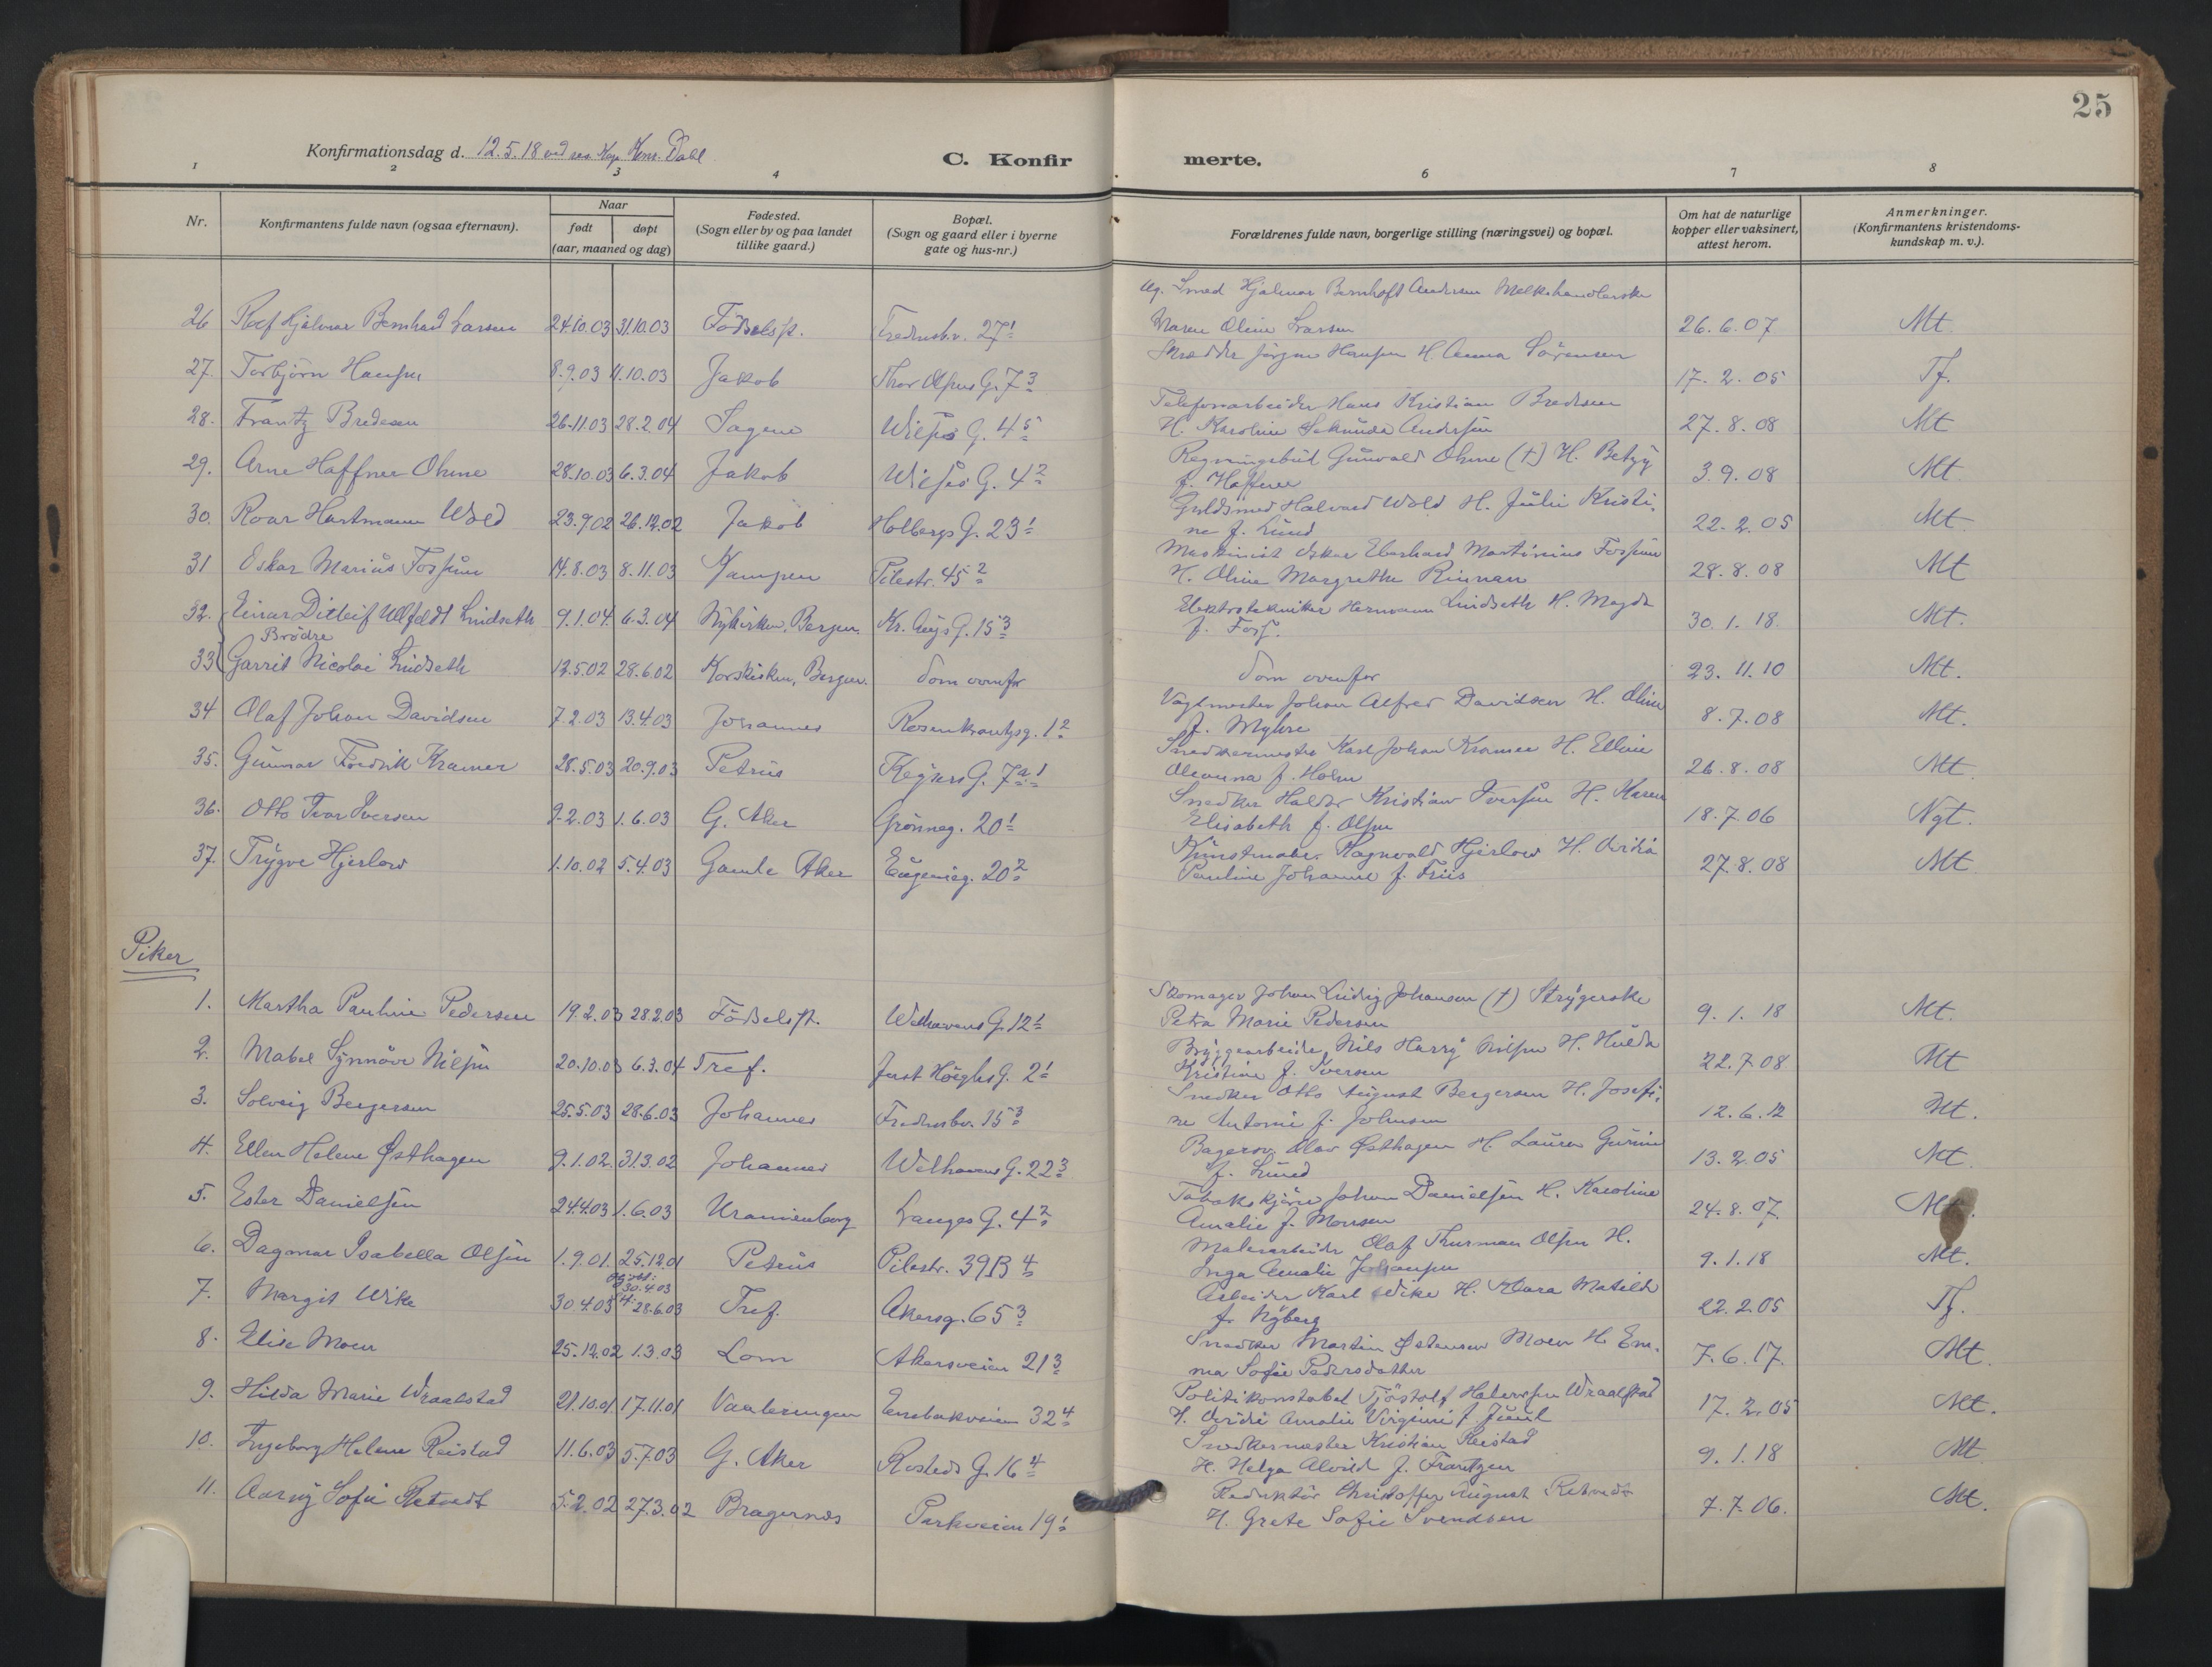 25
Konfirmationsdag d. 12.5.18 ved res. Kap. Konr. Dahl
C. Konfirmerte.
1 2 3 4 6 7 8
Nr. Konfirmantens fulde navn (ogsaa efternavn). Naar født døpt (aar, maaned og dag) Fødested. (Sogn eller by og paa landet tillike gaard.) Bopæl. (Sogn og gaard eller i byerne gate og hus-nr.) Forældrenes fulde navn, borgerlige stilling (næringsvei) og bopæl. Om hat de naturlige kopper eller vaksinert, attest herom. Anmerkninger. (Konfirmantens kristendomskundskap m. v.).
Ug. Smed Hjalmar Bernhoft Andersen Melkehandlerske
26 Rolf Hjalmar Bernhard Larsen 24.10.03 31.10.03 Födselsst. Fredensb.v. 27 1 Maren Oline Larsen 26.6.07 Mt.
Skrædder Jörgen Hansen H. Anna Sörensen
27. Torbjörn Hansen 8.9.03 11.10.03 Jakob Thor Olsens G. 7 3 17.2.05 Tf.
Telefonarbeider Hans Kristian Bredesen
28. Frantz Bredesen 26.11.03 28.2.04 Sagene Wilses G. 4 5 H. Karoline Sekunda Andersen 27.8.08 Mt
Regningsbud Gunvald Ohme (†) H. Betzy
29. Arne Haffner Ohme 28.10.03 6.3.04 Jakob Wilses G. 4 2 f. Haffner 3.9.08 Mt
Guldsmed Halvard Wold H. Julie Kristi-
30. Roar Hartmann Wold 23.9.02 26.12.02 Jakob Holbergs G. 23 1 ne f. Lund 22.2.05 Mt.
Maskinist Oskar Eberhard Martinius Fossum
31 Oskar Marius Fossum 14.8.03 8.11.03 Kampen Pilestr. 45 2 H. Oline Margrethe Rinnan 28.8.08 Mt
Elektrotekniker Hermann Lindseth H. Magda
32. Einar Ditleif Ulfeldt Lindseth 9.1.04. 6.3.04 Nykirken, Bergen. Kr. Augs G. 15 3 f. Foss. 30.1.18. Mt.
Brödre
33 Garrit Nicolai Lindseth 12.5.02 28.6.02 Korskirken, Bergen. Som ovenfor Som ovenfor 23.11.10 Mt.
Vagtmester Johan Alfred Davidsen H. Oline
34 Olaf Johan Davidsen 7.2.03 13.4.03 Johannes Rosenkrantzg. 1 2 f. Myhre 8.7.08 Mt.
Snedkermester Karl Johan Kramer H. Elline
35. Gunnar Fredrik Kramer 28.5.03 20.9.03 Petrus Keysers G. 7 a 1 Oleanna f. Holm 26.8.08 Mt
Snedker Haldor Kristian Iversen H. Karen
36. Otto Ivar Iversen 9.2.03 1.6.03 G. Aker Grönneg. 20 1 Elisabeth f. Olsen 18.7.06 Ngt.
Kunstmaler Ragnvald Hjerlow H. Ovidia
37. Trygve Hjerlow 1.10.02 5.4.03 Gamle Aker Eugenieg. 20 2 Pauline Johanne f. Friis 27.8.08 Mt
Piker
Skomager Johan Ludvig Johansen (†) Strygerske
1. Martha Pauline Pedersen 19.2.03 28.2.03 Födselsst. Welhavens G. 12 1 Petra Marie Pedersen 9.1.18 Mt.
Bryggearbeider Nils Harry Nilsen H. Hulda
2. Mabel Synnöve Nilsen 20.10.03 6.3.04 Tref. Just Höeghs G. 2 1 Kristine f. Iversen 22.7.08 Mt
Snedker Otto August Bergersen H. Josefi-
3. Solveig Bergersen 25.5.03 28.6.03 Johannes Fredensbv. 15 3 ne Antonie f. Johnsen 12.6.12 Mt.
Bagersv. Olav Østhagen H. Laura
4. Ellen Helene Østhagen 9.1.02. 31.3.02 Johannes Welhavens G. 22 3 f. Lund 13.2.05 Mt.
Johan Danielsen H. Karoline
5. Ester Danielsen 24.4.03 1.6.03 Uranienborg Langes G. 4 2 Amalie f. Monsen 24.8.07. Mt.
Malerarbeider Olaf Thurman Olsen H.
6. Dagmar Isabella Olsen 1.9.01. 25.12.01 Petrus Pilestr. 39B 4 Inga Amalie Johansen 9.1.18 Mt.
30.4.03
Arbeider Karl Wike H. Klara Matilde
7. Margit Wike 30.4.03 28.6.03 Tref. Akersg. 65 3 f. Nyberg 22.2.05 Tf.
Snedker Martin Østensen Moen H. Em-
8. Elise Moen 25.12.02 1.3.03 Lom Akersveien 21 3 ma Sofie Pedersdatter 7.6.17. Mt.
Politikonstabel Tjöstolf Halvorsen Wraalstad
9. Hilda Marie Wraalstad 21.10.01 17.11.01 Vaalerengen Enebakveien 32 4 H. Ovidie Amalie Virginie f. Juul 17.2.05 Mt.
Snedkermester Kristian Reistad
10. Ingeborg Helene Reistad 11.6.03 5.7.03 G. Aker Rosteds G. 16 4 H. Helga Alvild f. Frantzen 9.1.18 Mt
Redaktör Christoffer August Retvedt
11. Aasny Sofie Retvedt 5.2.02 27.3.02 Bragernes Parkveien 19 1 H. Grete Sofie Svendsen 7.7.06. Mt.